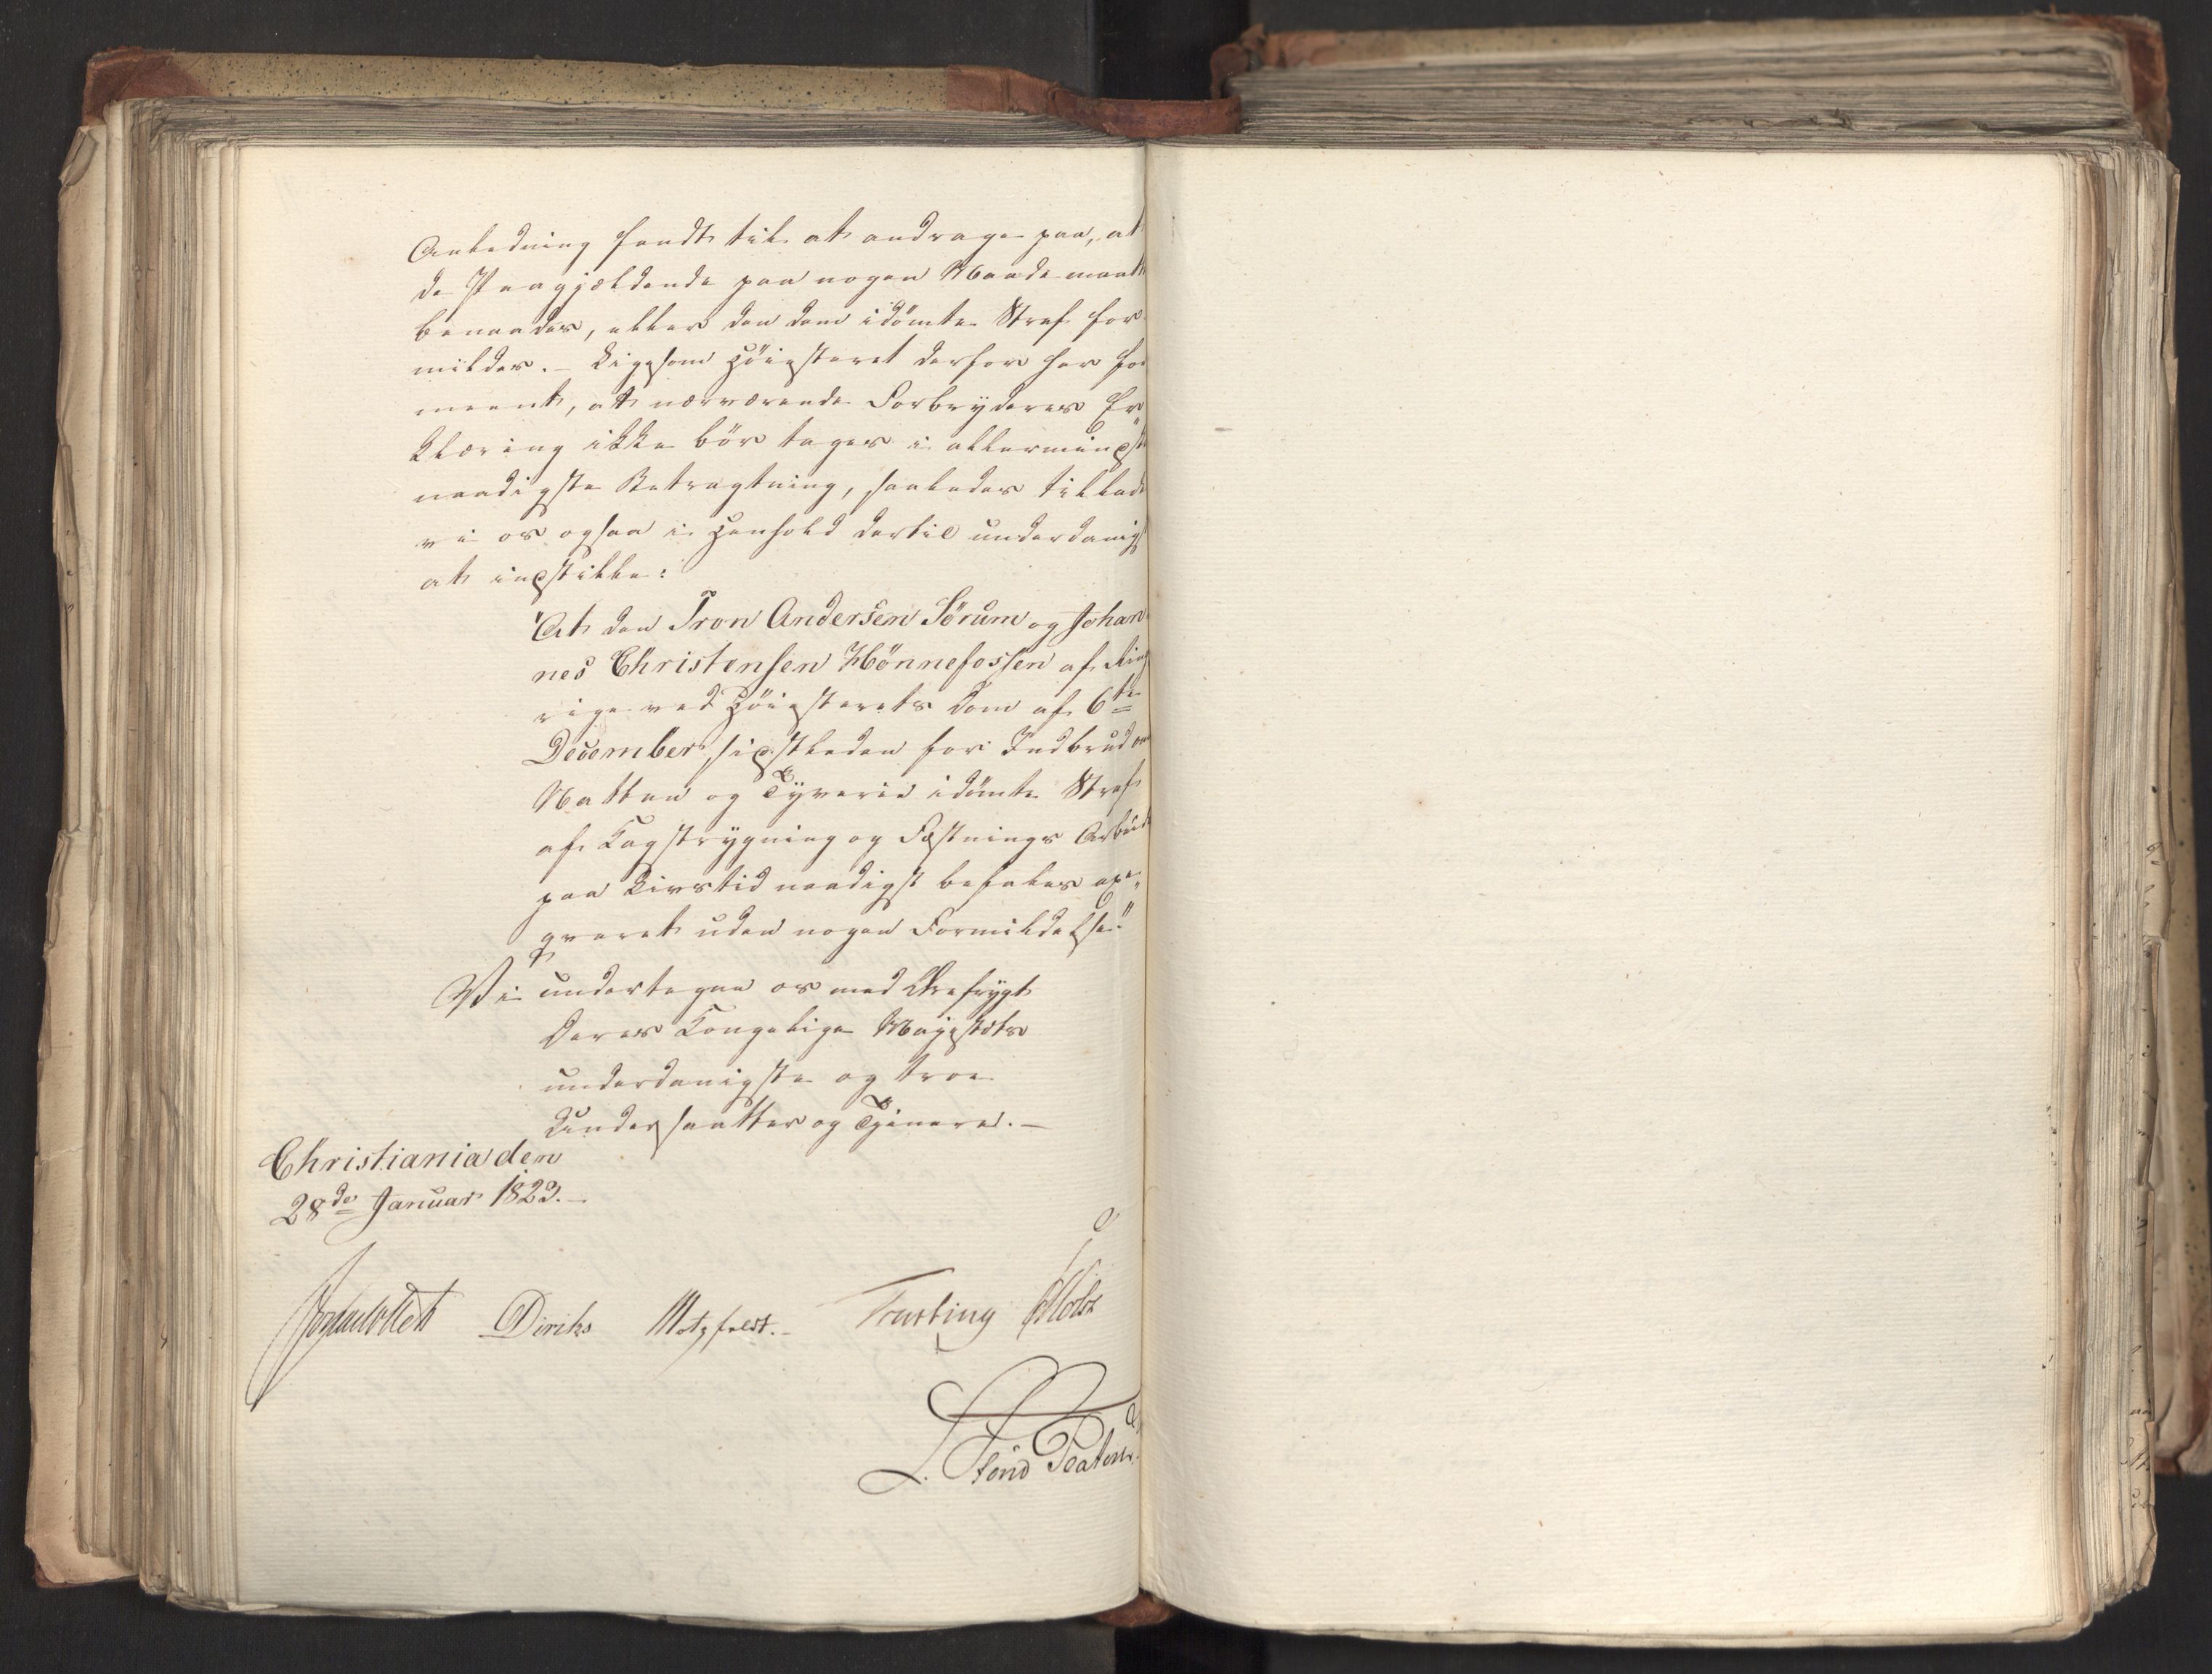 Anledning fandt til at andrage paa, at
de Paagjældende paa nogen Maade maatte
benaades, eller den dem idømte Straf for
mildes. – Ligesom Høiesteret derfor har for
meent, at nærværende Forbryderes Er
klæring ikke bør tages i allermindst
naadigste Betragtning, saaledes tillade
vi os ogsaa i Henhold dertil underdanigst
at indstille:
"At den Tron Andersen Sørum og Johan
nes Christensen Hønnefossen af Ring
rige ved Høiesterets Dom af 6te
December sidstleden for Indbrud om
Natten og Tyverie idømte Straf
af Kagstrygning og Fæstnings Arbeide
paa Livstid naadigst befales exe„
qveret uden nogen Formildelse."
Vi undertegne os med Ærefrygt
Deres Kongelige Majestæts
underdanigste og troe
Undersaatter og Tjenere. –
Christiania den
28de Januar 1823. –
Diriks Motzfeldt. –
L. Stoud Platou